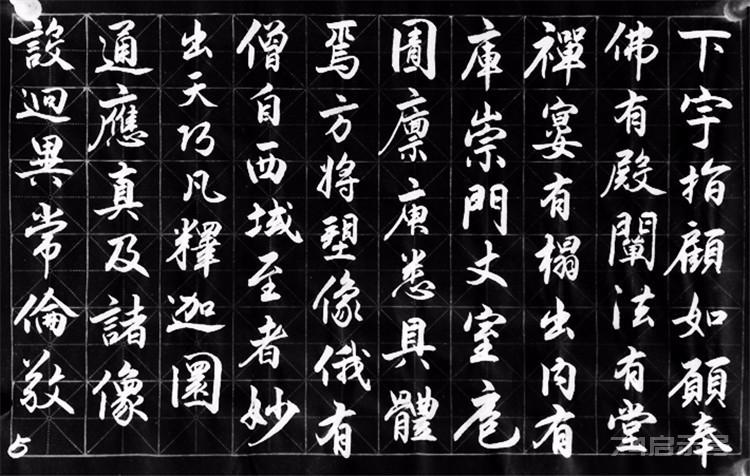 下宇指顧如願奉
佛有殿闡法有堂
禪宴有榻出內有
庫崇門丈室庖
圊廪庾悉具體
焉方將塑像俄有
僧自西域至者妙
出天巧凡釋迦圜
通應真及諸像
設迥異常倫敬
5